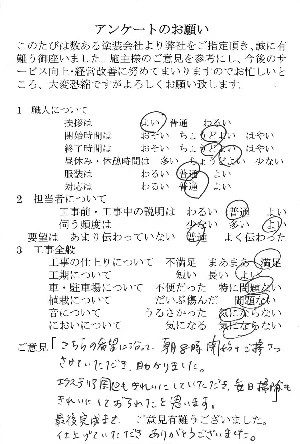 アンケートのお願い
このたびは数ある塗装会社より弊社をご指定頂き、誠に有
難う御座いました。施主様のご意見を参考にし、今後のサ
ービス向上・経営改善に努めてまいりますのでお忙しいと
ころ、大変恐縮ですがよろしくお願い致します。
1 職人について
挨拶は よい 普通 わるい
開始時間は おそい ちょうどよい はやい
終了時間は おそい ちょうどよい はやい
昼休み・休憩時間は 多い ちょうどよい 少ない
服装は わるい 普通 よい
対応は わるい 普通 よい
2 担当者について
工事前・工事中の説明は わるい 普通 よい
伺う頻度は 少ない 多い よい
要望は あまり伝わっていない 普通 よく伝わった
3 工事全般
工事の仕上りについて 不満足 まあまあ 満足
工期について 短い 長い よい
車・駐車場について 不便だった 特に問題ない
植栽について だいぶ傷んだ 問題ない
音について うるさかった 気にならない
においについて 気になる 気にならない
ご意見「こちらの希望に沿って、朝8時開始でご
させていただき、助かりました。
きれいにしていただき、毎日掃除も
きれいにしておられたと思います。
最後完成まで、 ご意見有難うございました。
仕上げていただき ありがとうございます。